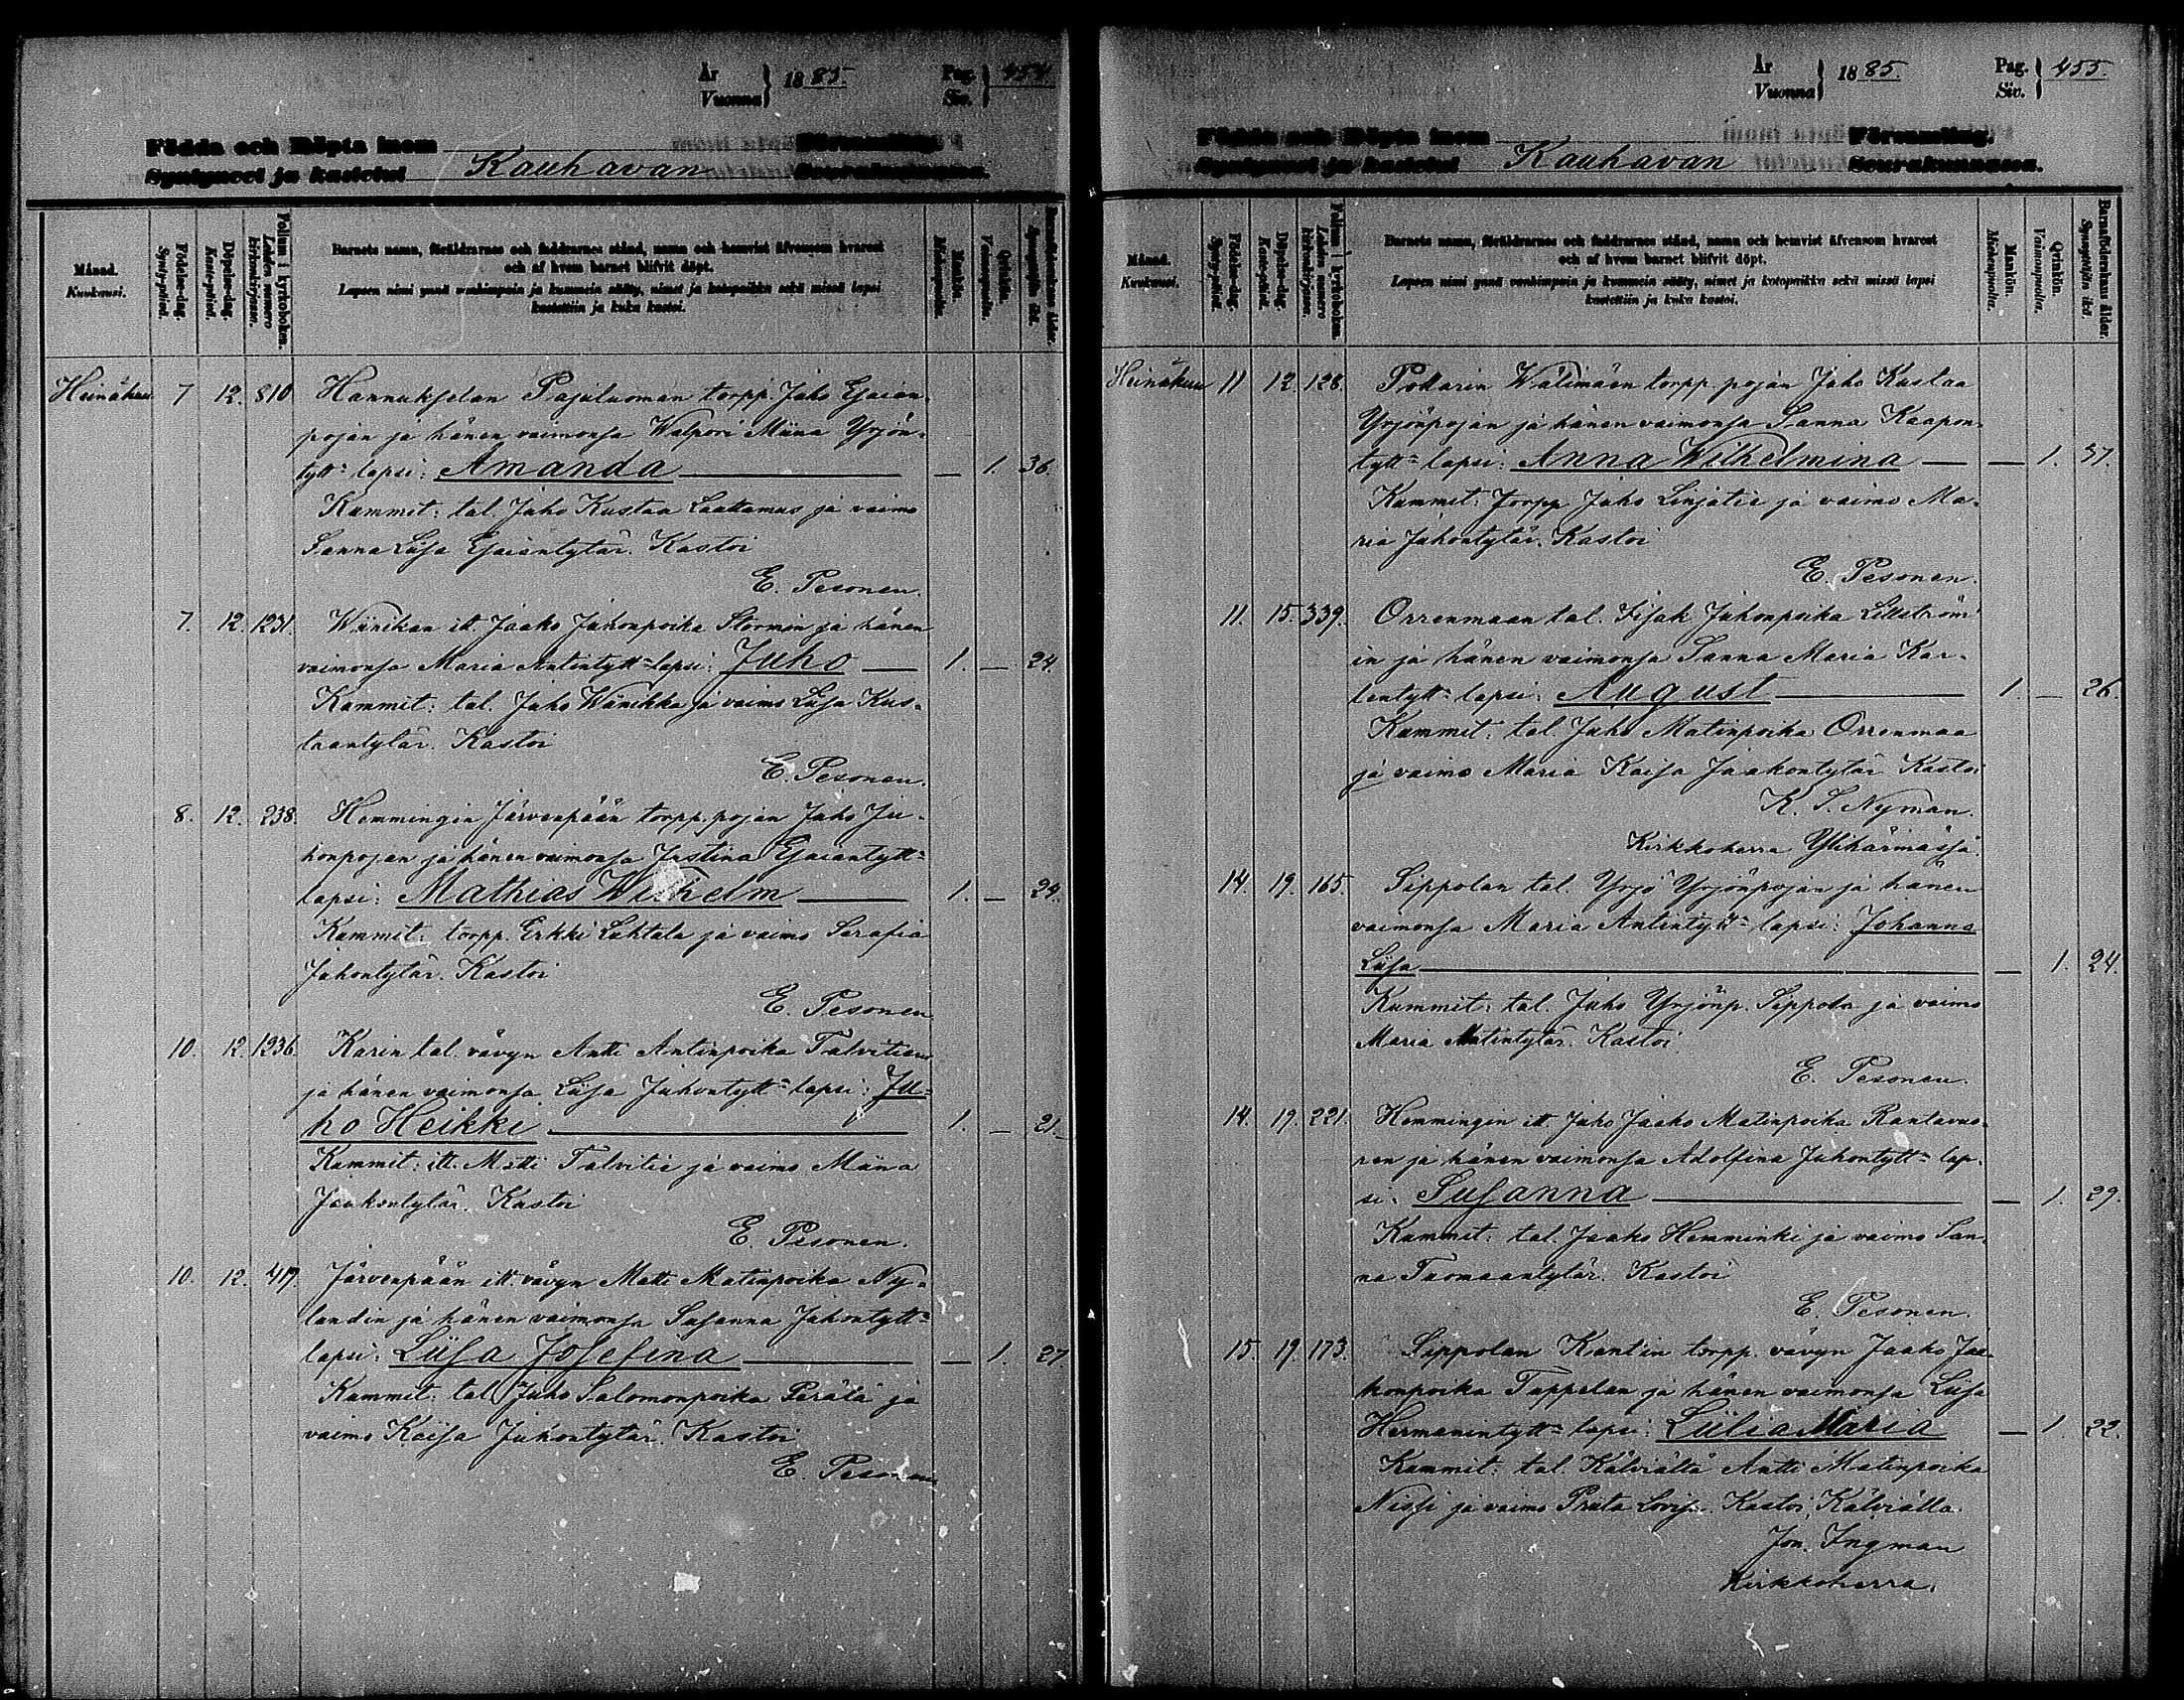 År
Vuonna } 1885. Pag.
Siv. } 454
Födda och Döpta inom Församling.
Syntyneet ja kastetut Kauhavan Seurakunnassa.
Månad.
Kuukausi.
Födelse-dag.
Synty-päivä.
Döpelse-dag.
Kaste-päivä.
Folium i kyrkoboken.
Lehden numero kirkonkirjassa.
Barnets namn, föräldrarnes och faddrarnes stånd, namn och hemvist äfvensom hvarest
och af hvem barnet blifvit döpt.
Lapsen nimi ynnä vanhimpain ja kummein sääty, nimet ja kotopaikka sekä missä lapsi
kastettiin ja kuka kastoi.
Mankön.
Miehenpuolia.
Qvinkön.
Vaimonpuolia.
Barnaföderskans ålder.
Synnyttäjän ikä.
Heinäkuu 7 12. 810 Hannukselan Pajuluoman torpp. Juho Esaian-
pojan ja hänen vaimonsa Walpori Miina Yrjön-
tytt= lapsi: Amanda — 1. 36.
Kummit: tal. Juho Kustaa Laattamus ja vaimo
Sanna Liisa Esaiantytär. Kastoi
E. Pesonen.
7. 12. 1231. Wiinikan itt. Jaako Juhonpoika Stormin ja hänen
vaimonsa Maria Antintytt= lapsi: Juho 1. — 24.
Kummit: tal. Juho Wiinikka ja vaimo Liisa Kus-
taantytär. Kastoi
E. Pesonen.
8. 12. 238. Hemmingin Järvenpään torpp. pojan Juho Ju-
honpojan ja hänen vaimonsa Justiina Esaiantytt=
lapsi: Mathias Wilhelm 1. — 24.
Kummit: torpp. Erkki Lahtala ja vaimo Serafia
Juhontytär. Kastoi
E. Pesonen
10. 12. 1236. Karin tal. vävyn Antti Antinpoika Talvitien
ja hänen vaimonsa Liisa Juhontytt= lapsi: Ju-
ho Heikki 1. — 21.
Kummit: itt. Matti Talvitie ja vaimo Miina
Jaakontytär. Kastoi
E. Pesonen.
10. 12. 417. Järvenpään itt. vävyn Matti Matinpoika Ny-
landin ja hänen vaimonsa Susanna Juhontytt=
lapsi: Liisa Josefina — 1. 27
Kummit: tal. Juho Salomonpoika Perälä ja
vaimo Kaisa Juhontytär. Kastoi
E. Pesonen
År
Vuonna } 1885. Pag.
Siv. } 455.
Födda och Döpta inom Församling.
Syntyneet ja kastetut Kauhavan Seurakunnassa.
Månad.
Kuukausi.
Födelse-dag.
Synty-päivä.
Döpelse-dag.
Kaste-päivä.
Folium i kyrkoboken.
Lehden numero kirkonkirjassa.
Barnets namn, föräldrarnes och faddrarnes stånd, namn och hemvist äfvensom hvarest
och af hvem barnet blifvit döpt.
Lapsen nimi ynnä vanhimpain ja kummein sääty, nimet ja kotopaikka sekä missä lapsi
kastettiin ja kuka kastoi.
Mankön.
Miehenpuolia.
Qvinkön.
Vaimonpuolia.
Barnaföderskans ålder.
Synnyttäjän ikä.
Heinäkuu 11 12. 128. Pottarin Wälimäen torpp. pojan Juho Kustaa
Yrjönpojan ja hänen vaimonsa Sanna Kaapon-
tytt= lapsi: Anna Wilhelmina — 1. 37.
Kummit: Torpp Juho Linjatie ja vaimo Ma-
ria Juhontytär. Kastoi
E. Pesonen.
11. 15. 339. Orrenmaan tal. Iisak Juhonpoika Lillström-
in ja hänen vaimonsa Sanna Maria Kar-
lentytt= lapsi: August 1. — 26.
Kummit: tal. Juho Matinpoika Orrenmaa
ja vaimo Maria Kaisa Jaakontytär Kastoi
K. S. Nyman.
Kirkkoherra Ylihärmässä.
14. 19. 165. Sippolan tal. Yrjö Yrjönpojan ja hänen
vaimonsa Maria Antintytt= lapsi: Johanna
Liisa — 1. 24.
Kummit: tal. Juho Yrjönp. Sippola ja vaimo
Maria Matintytär. Kastoi
E. Pesonen.
14. 19. 221. Hemmingin itt. Juho Jaako Matinpoika Rantavuo-
ren ja hänen vaimonsa Adolfina Juhontytt= lap-
si: Susanna — 1. 29.
Kummit: tal. Jaako Hemminki ja vaimo San-
na Tuomaantytär. Kastoi
E. Pesonen.
15. 19. 173. Sippolan Kantin torpp. vävyn Jaako Jaa-
konpoika Tappelan ja hänen vaimonsa Liisa
Hermanintytt= lapsi: Lüliä Maria — 1. 22.
Kummit: tal. Kälviältä Antti Matinpoika
Nissi ja vaimo Priita Lovisa. Kastoi Kälviällä
Jon. Ingman
Kirkkoherra.